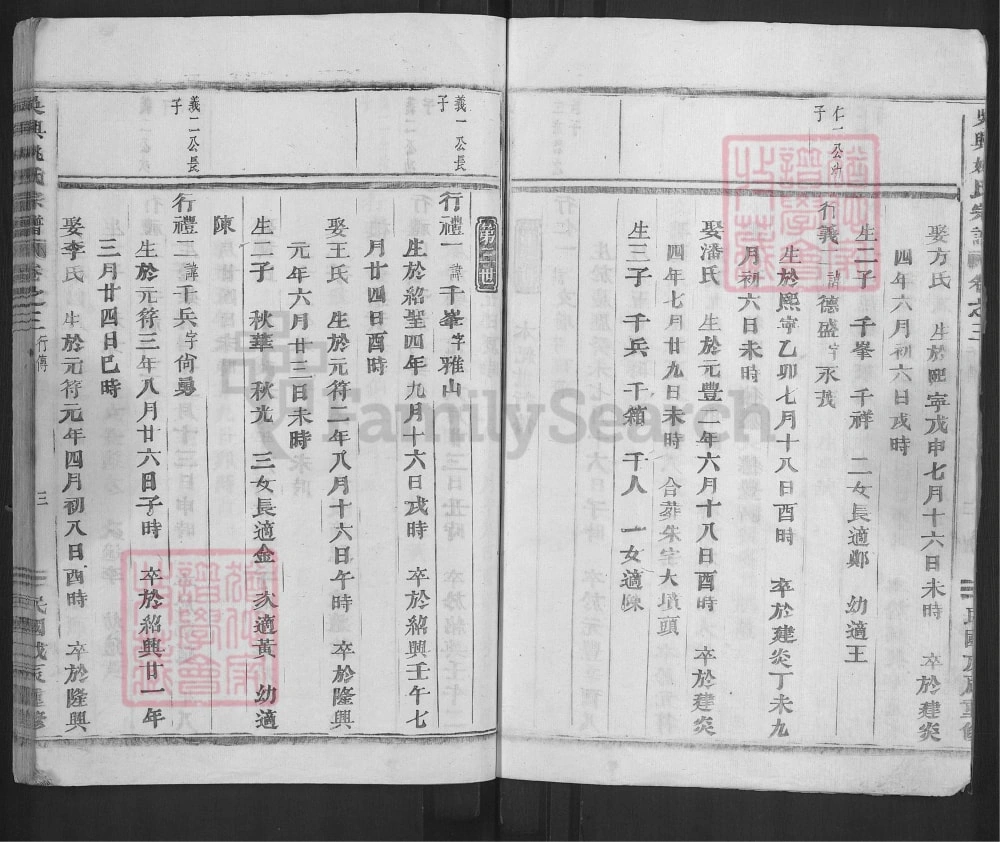 吳興姚氏宗譜 卷之三
民國戊辰重修
娶方氏 生於熙寧戊申七月十六日未時 卒於建炎
四年六月初六日戌時
生二子 千峯 千祥 二女長適鄭 幼適王
仁一公幼
子
行義一 諱德盛 字永茂
生於熙寧乙卯七月十八日酉時 卒於建炎丁未九
月初六日未時
娶潘氏 生於元豐二年六月十八日酉時 卒於建炎
四年七月廿九日未時 合葬朱字大墳頭
生三子 千兵 千箱 千人 一女適陳
第三世
義一公長
子
行禮一 諱千峯 字雅山
生於紹聖四年九月十六日戌時 卒於紹興壬午七
月廿四日酉時
娶王氏 生於元符二年八月十六日午時 卒於隆興
元年六月廿三日未時
生二子 秋華 秋光 三女長適金 次適黃 幼適
陳
義二公長
子
行禮二 諱千兵 字尙勇
生於元符三年八月廿六日子時 卒於紹興廿一年
三月廿四日巳時
娶李氏 生於元符元年四月初八日酉時 卒於隆興
吳興姚氏宗譜 卷之三 行傳 三 民國戊辰重修
FamilySearch